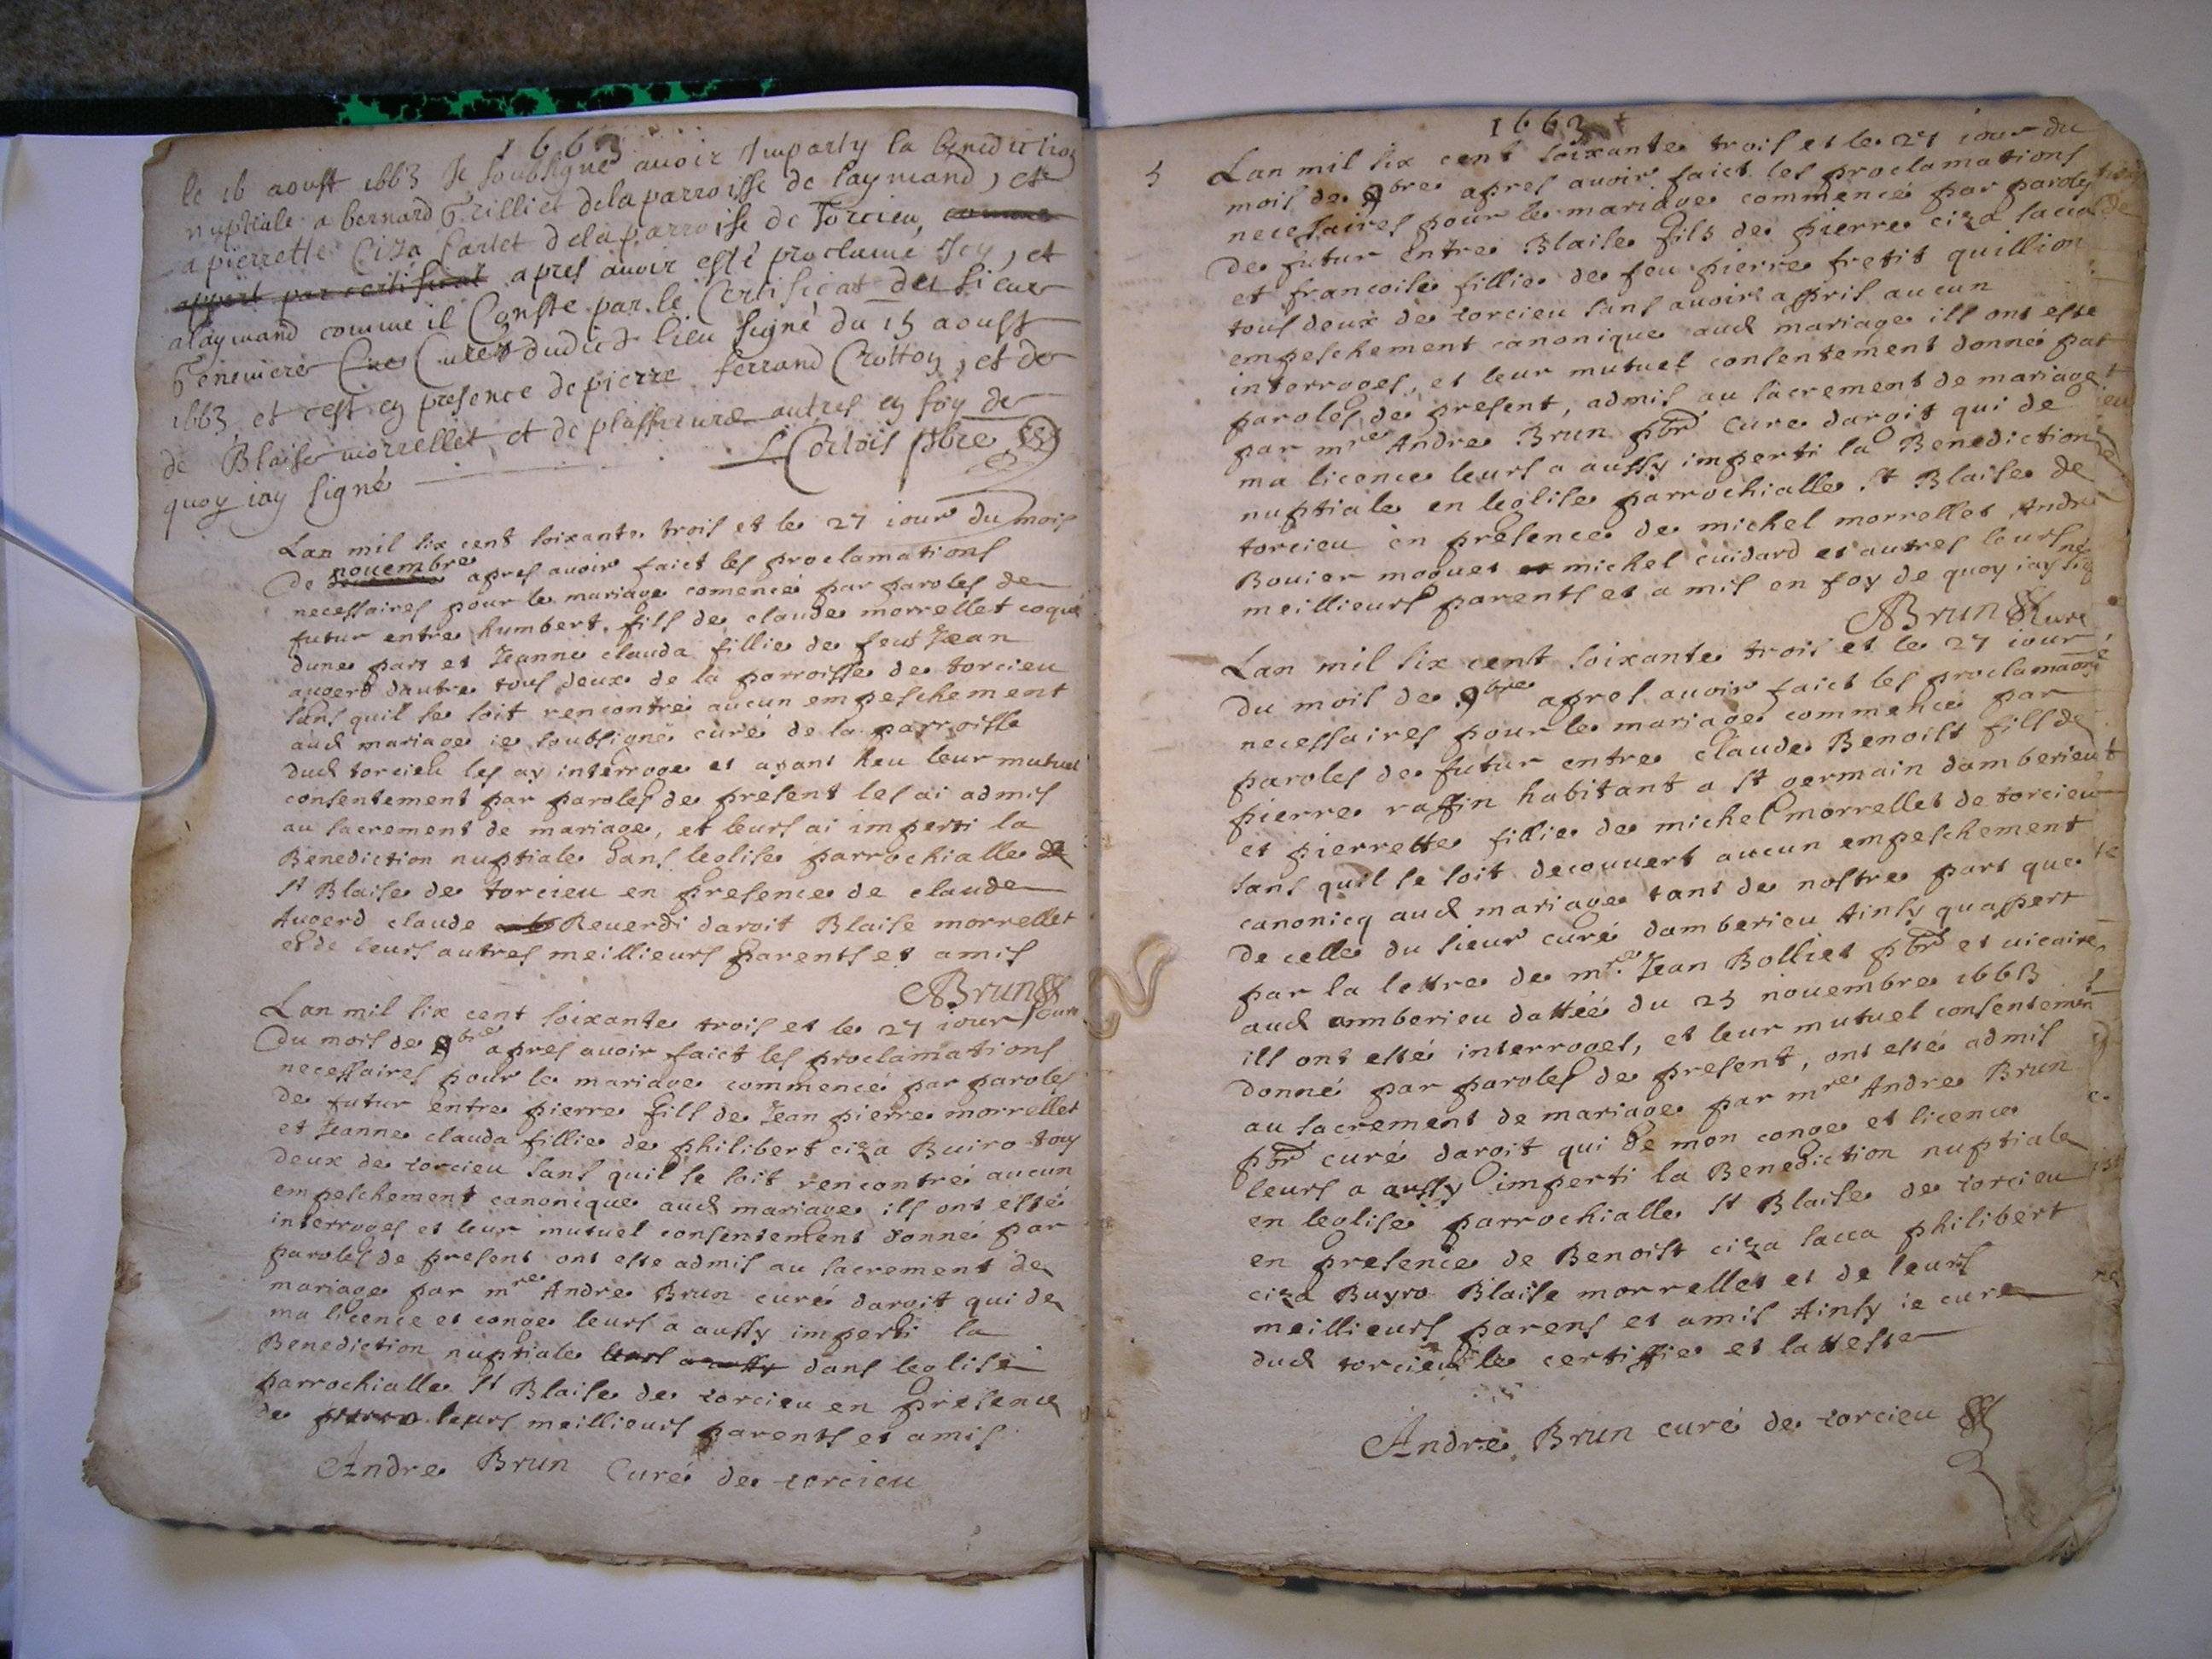 1663
le 16 aoust 1663 Je soubsigné avoir Imparty la benediction
nuptiale a bernard Trilliet dela parroisse de laymand, et
a pierrette Ciza Carlet dela parroisse de Torcieu, comme
appert par certificat apres avoir esté proclamé Icy, et
a laymand comme il Conste par le Certificat du sieur
Curé dudict lieu signé du 15 aoust
1663 et cest en presence de pierre ferrand Crotton, et de
de Blaise morrellet et de plussieurs autres en foy de
quoy iay signé
Cortois pbre
Lan mil six cent soixante trois et le 27 iour du mois
de novembre apres avoir faict les proclamations
necessaires pour le mariage comencé par paroles de
futur entre humbert fils de claude morrellet coque
dune part et Jeanne clauda fillie de feut Jean
augerd dautre tous deux de la parroisse de torcieu
sans quil se soit rencontré aucun empeschement
aud mariage ie soubsigné curé de la parroisse
dud torcieu les ay interroge et ayant heu leur mutuel
consentement par paroles de present les ai admis
au sacrement de mariage, et leurs ai imperti la
Benediction nuptiale dans leglise parrochialle de
st Blaise de torcieu en presence de claude
Augerd claude Reverdi daroit Blaise morrellet
et de leurs autres meillieurs parents et amis
ABrun
Curé
Lan mil six cent soixante trois et le 27 iour
du mois de 9bre apres avoir faict les proclamations
necessaires pour le mariage commencé par paroles
de futur entre pierre fils de Jean pierre morrellet
et Jeanne clauda fillie de philibert ciza Buiro tous
deux de torcieu sans quil se soit rencontré aucun
empeschement canonique aud mariage ils ont esté
interroges et leur mutuel consentement donné par
paroles de present ont esté admis au sacrement de
mariage par mre Andre Brun curé daroit qui de
ma licence et conge leurs a aussy imperti la
Benediction nuptiale leurs a aussy dans leglise
parrochialle st Blaise de torcieu en presence
de pierre leurs meillieurs parents et amis
Andre Brun Curé de torcieu
1663
5
Lan mil six cent soixante trois et le 27 iour du
mois de 9bre apres avoir faict les proclamations
necessaires pour le mariage commencé par paroles
de futur entre Blaise fils de pierre ciza sacca
et francoise fillie de feu pierre fretit quillion
tous deux de torcieu sans avoir appris aucun
empeschement canonique aud mariage ils ont esté
interroges, et leur mutuel consentement donné par
paroles de present, admis au sacrement de mariage
par mre Andre Brun pbre Curé daroit qui de
ma licence leurs a aussy imperti la Benediction
nuptiale en leglise parrochialle st Blaise de
torcieu en presence de michel morrellet Andre
Bovier moquet et michel cuidard et autres leurs
meillieurs parents et amis en foy de quoy iay signé
ABrun Curé
Lan mil six cent soixante trois et le 27 iour
du mois de 9bre apres avoir faict les proclamaons
necessaires pour le mariage commencé par
paroles de futur entre claude Benoist fils de
pierre raffin habitant a st germain damberieu
et pierrette fillie de michel morrellet de torcieu
sans quil se soit decouvert aucun empeschement
canonicq aud mariage tant de nostre part que
de celle du sieur curé damberieu Ainsy quappert
par la lettre de mre Jean Bolliet pbre et vicaire
aud amberieu dattée du 25 novembre 1663
ils ont esté interroges, et leur mutuel consentement
donné par paroles de present, ont esté admis
au sacrement de mariage par mre Andre Brun
pbre curé daroit qui de mon conge et licence
leurs a aussy imperti la Benediction nuptiale
en leglise parrochialle st Blaise de torcieu
en presence de Benoist ciza sacca philibert
ciza Buyro Blaise morrellet et de leurs
meillieurs parens et amis Ainsy ie curé
dud torcieu le certiffie et latteste
André Brun curé de torcieu